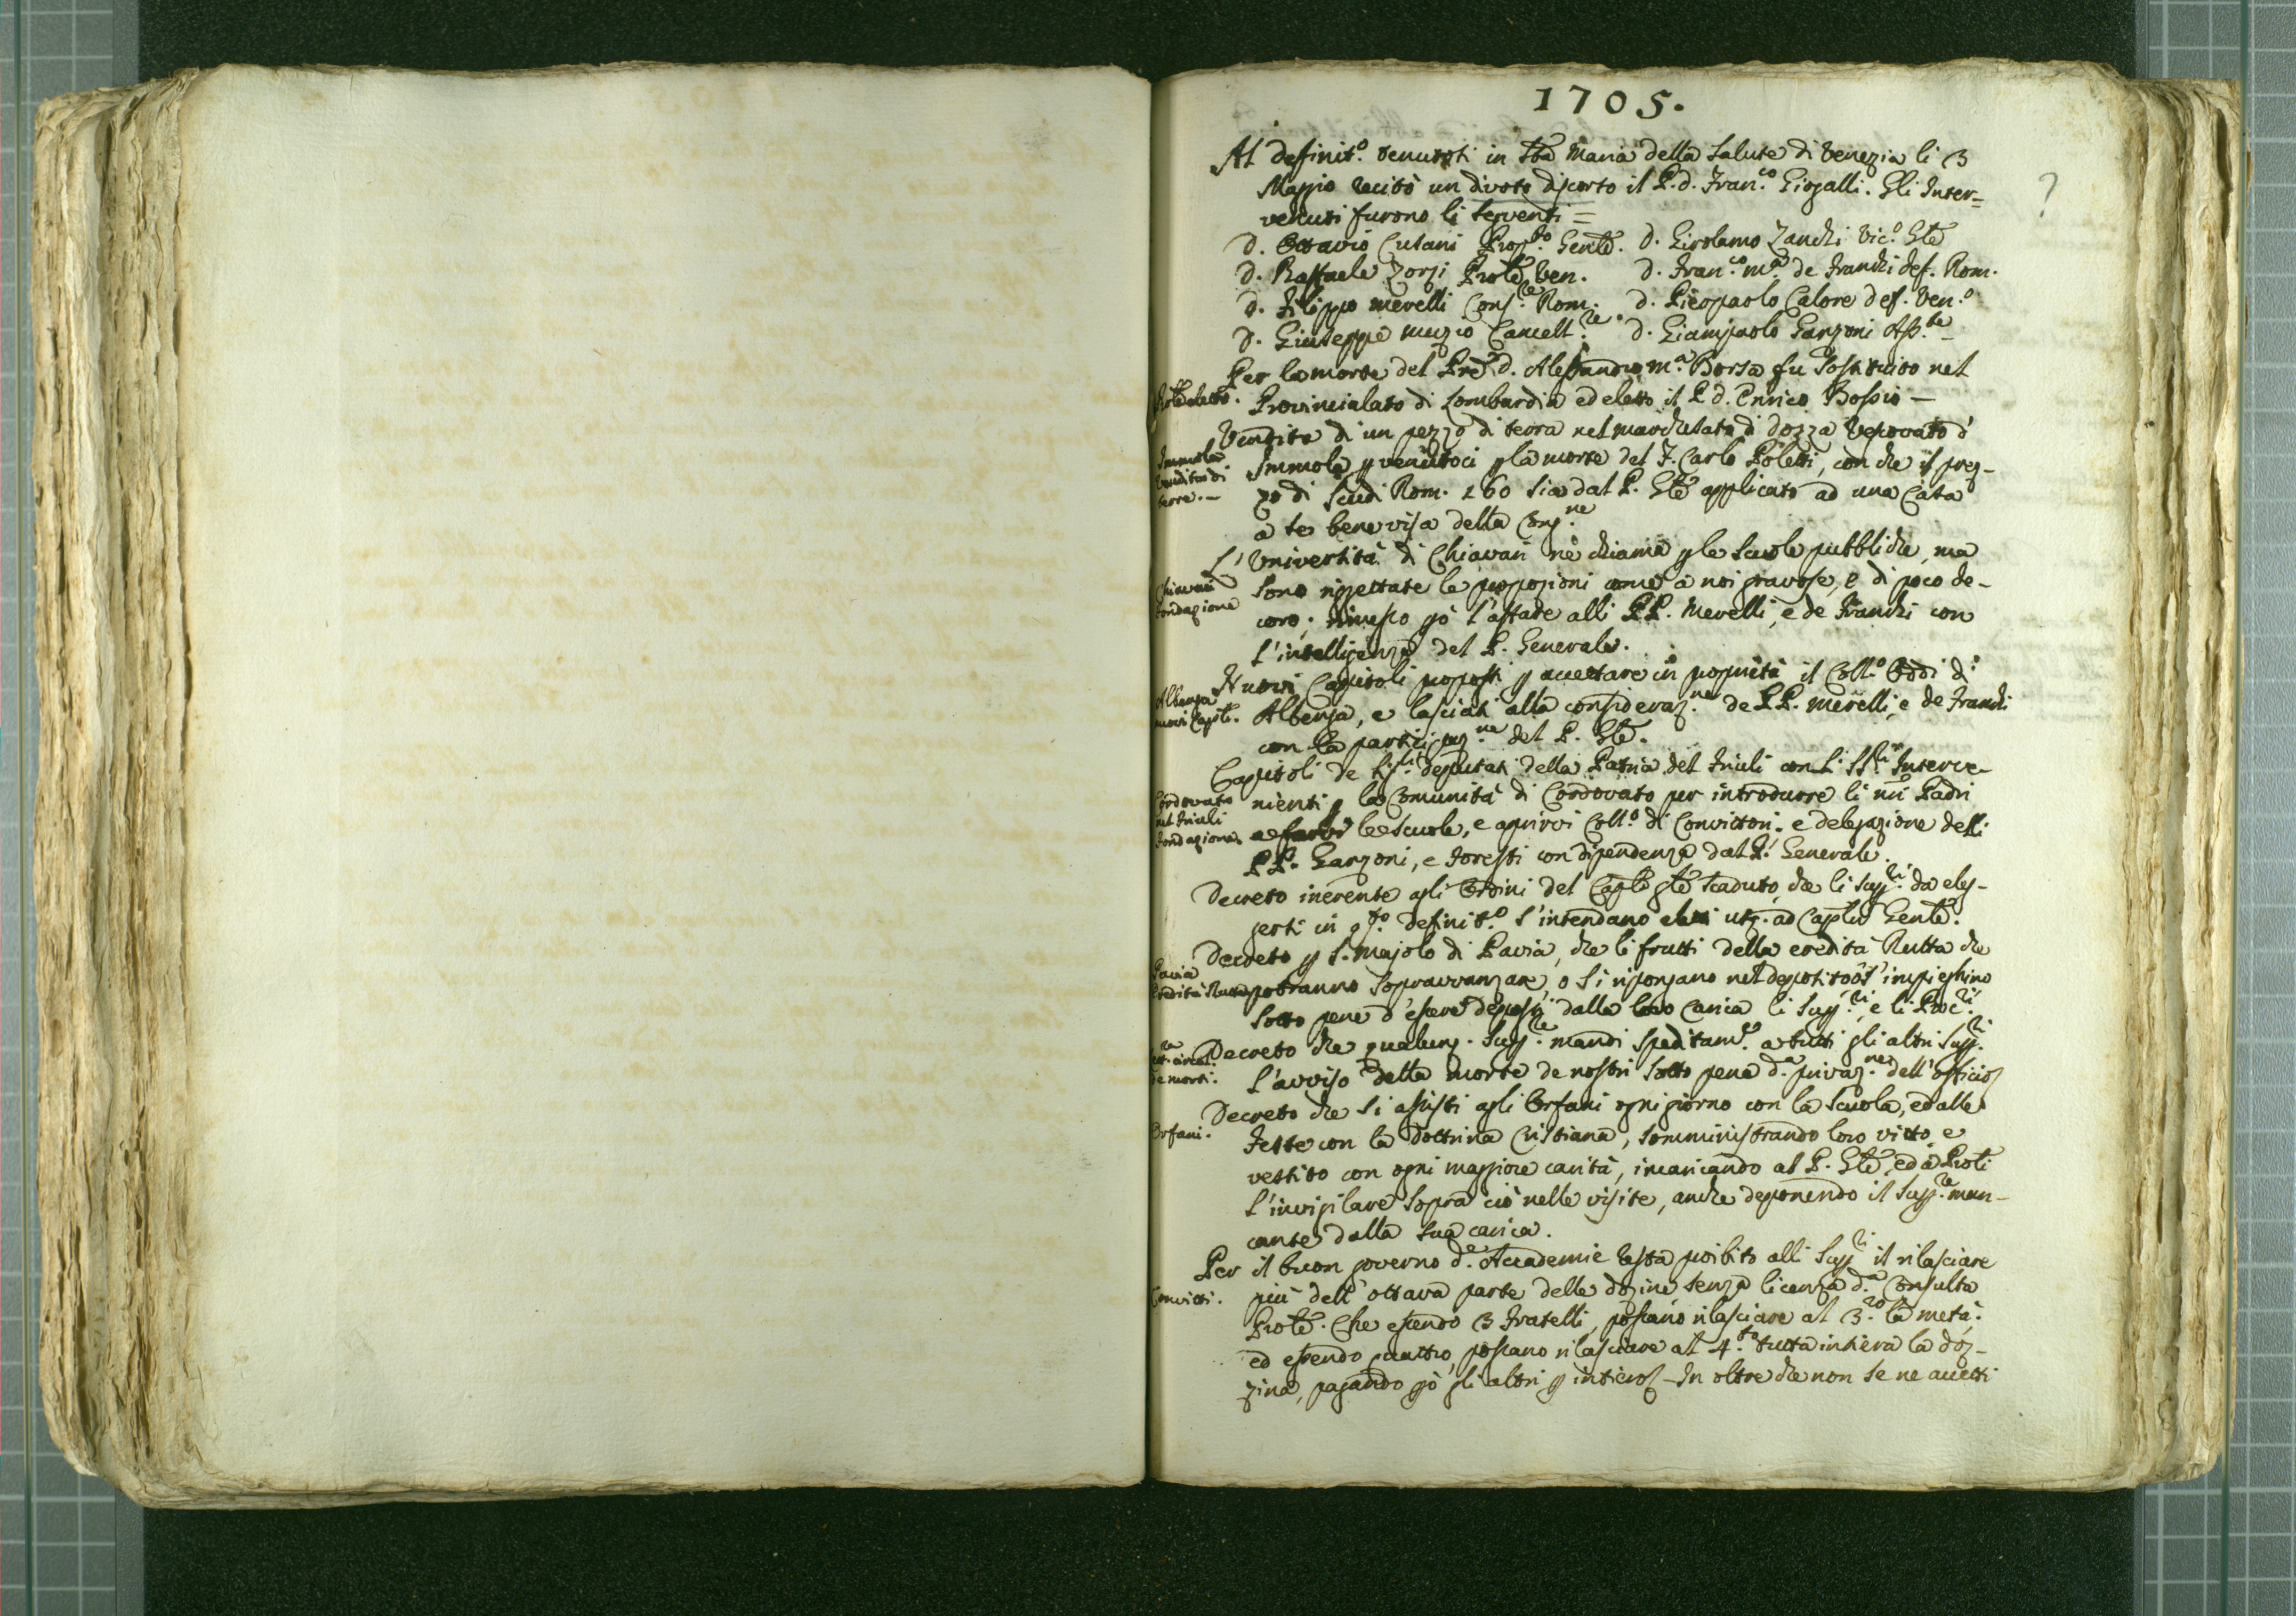 1705.
Al definit.º tenutosi in Sta Maria della Salute di Venezia li 3
Maggio recitò un divoto discorso il P. d. Fran.co Gisgalli. Gli Inter=
venuti furono li seguenti =
D. Ottavio Cusani Prop.to Genle. D. Girolamo Zanchi Vic.º Gle
D. Raffaele Zorzi Prole Ven. D. Fran.co m.a de Franchi def. Rom.
D. Filippo Merelli Cons.re Rom. D. Pierpaolo Calore def. Ven.º
D. Giuseppe Muzio Cancell.re D. Giampaolo Garzoni Ass.te
Per la morte del Pre d. Alessandro m.a Borsa fu sostituito nel
Prole eletto. Provincialato di Lombardia ed eletto il P. d. Enrico Bossio —
Vendita di un pezzo di terra nel marchesato di Dozza Vescovato d'
Immola Vendita di terre. — Immola p venutoci p la morte del F. Carlo Poletti, con che il prez-
zo di scudi Rom. 260 sia dal P. Gle applicato ad una Casa
a se benevisa della Cong.ne
L'Università di Chiavari ne chiama p le scuole pubbliche, ma
Chiavari fondazione sono rigettate le proposizioni come a noi gravose, e di poco de-
coro; rimesso pò l'affare alli PP. Merelli, e de Franchi con
l'intelligenza del P. Generale.
Nuovi Capitoli proposti p accettare in proprietà il Coll.º Oddi di
Albenga nuovi Capli. Albenga, e lasciati alla consideraz.ne de PP. Merelli, e de Franchi
con la particip.ne del P. Gle.
Capitoli de Sig.ri deputati della Patria del Friuli con li SS.ri Interve-
Cordovato nel Friuli fondazione. nienti p la Comunità di Cordovato per introdurre li nri Padri
a farvi le scuole, e aprirvi Coll.º di Convittori. e delegazione delli
PP. Garzoni, e Foresti con dipendenza dal P. Generale.
Decreto inerente agli Ordini del Caplo gle scaduto, che li Sup.ri da eleg-
gersi in q.to definit.º s'intendano eletti usq. ad Caplu Genle.
Decreto p S. Majolo di Pavia, che li frutti della eredità Rutta che
Pavia Eredità Rutta potranno sopravvanzare, o si ripongano nel deposito o s'impieghino
sotto pena d'essere deposti dalla loro carica li Sup.ri, e li Proc.ri
Decreto che qualunq. Sup.re mandi speditam.te a tutti gli altri Sup.ri
de morti. l'avviso della morte de nostri sotto pena d.a privaz.ne dell'officio
Decreto che si assisti agli Orfani ogni giorno con la scuola, ed alle
Orfani. Feste con la dottrina Cristiana, somministrando loro vitto, e
vestito con ogni maggiore carità, incaricando al P. Gle, ed a Proli
l'invigilare sopra ciò nelle visite, anche deponendo il Sup.re man-
cante dalla sua carica.
Per il buon governo d.e Accademie resta proibito alli Sup.ri il rilasciare
Convitti. più dell'ottava parte delle dozine senza licenza d.a Consulta
Prole. Che essendo 3 Fratelli, possano rilasciare al 3.zo la metà:
ed essendo quattro, possano rilasciare al 4.to tutta intiera la doz-
zina, pagando pò gli altri p intiero — In oltre che non se ne accetti
?